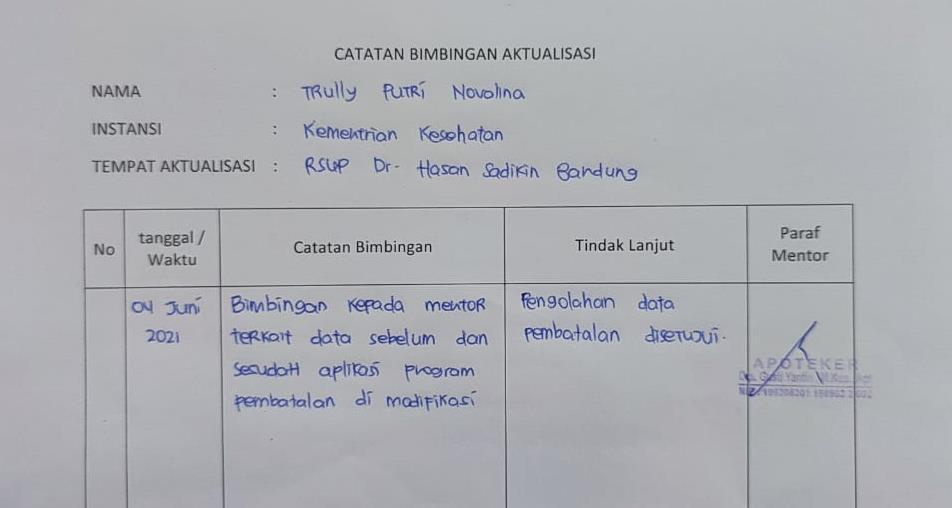 CATATAN BIMBINGAN AKTUALISASI
NAMA : TRully PUTRI Novalina
INSTANSI : Kementrian Kesehatan
TEMPAT AKTUALISASI : RSUP Dr. Hasan Sadikin Bandung
No
tanggal /
Waktu
Catatan Bimbingan
Tindak Lanjut
Paraf
Mentor
04 Juni
2021
Bimbingan kepada mentor
terkait data sebelum dan
sesudah aplikasi program
pembatalan di modifikasi
Pengolahan data
pembatalan disetujui.
APOTEKER